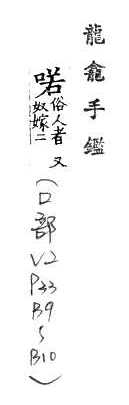 龍龕手鑑
喏俗人者奴嫁二又
(口部V2P33B9~B10)